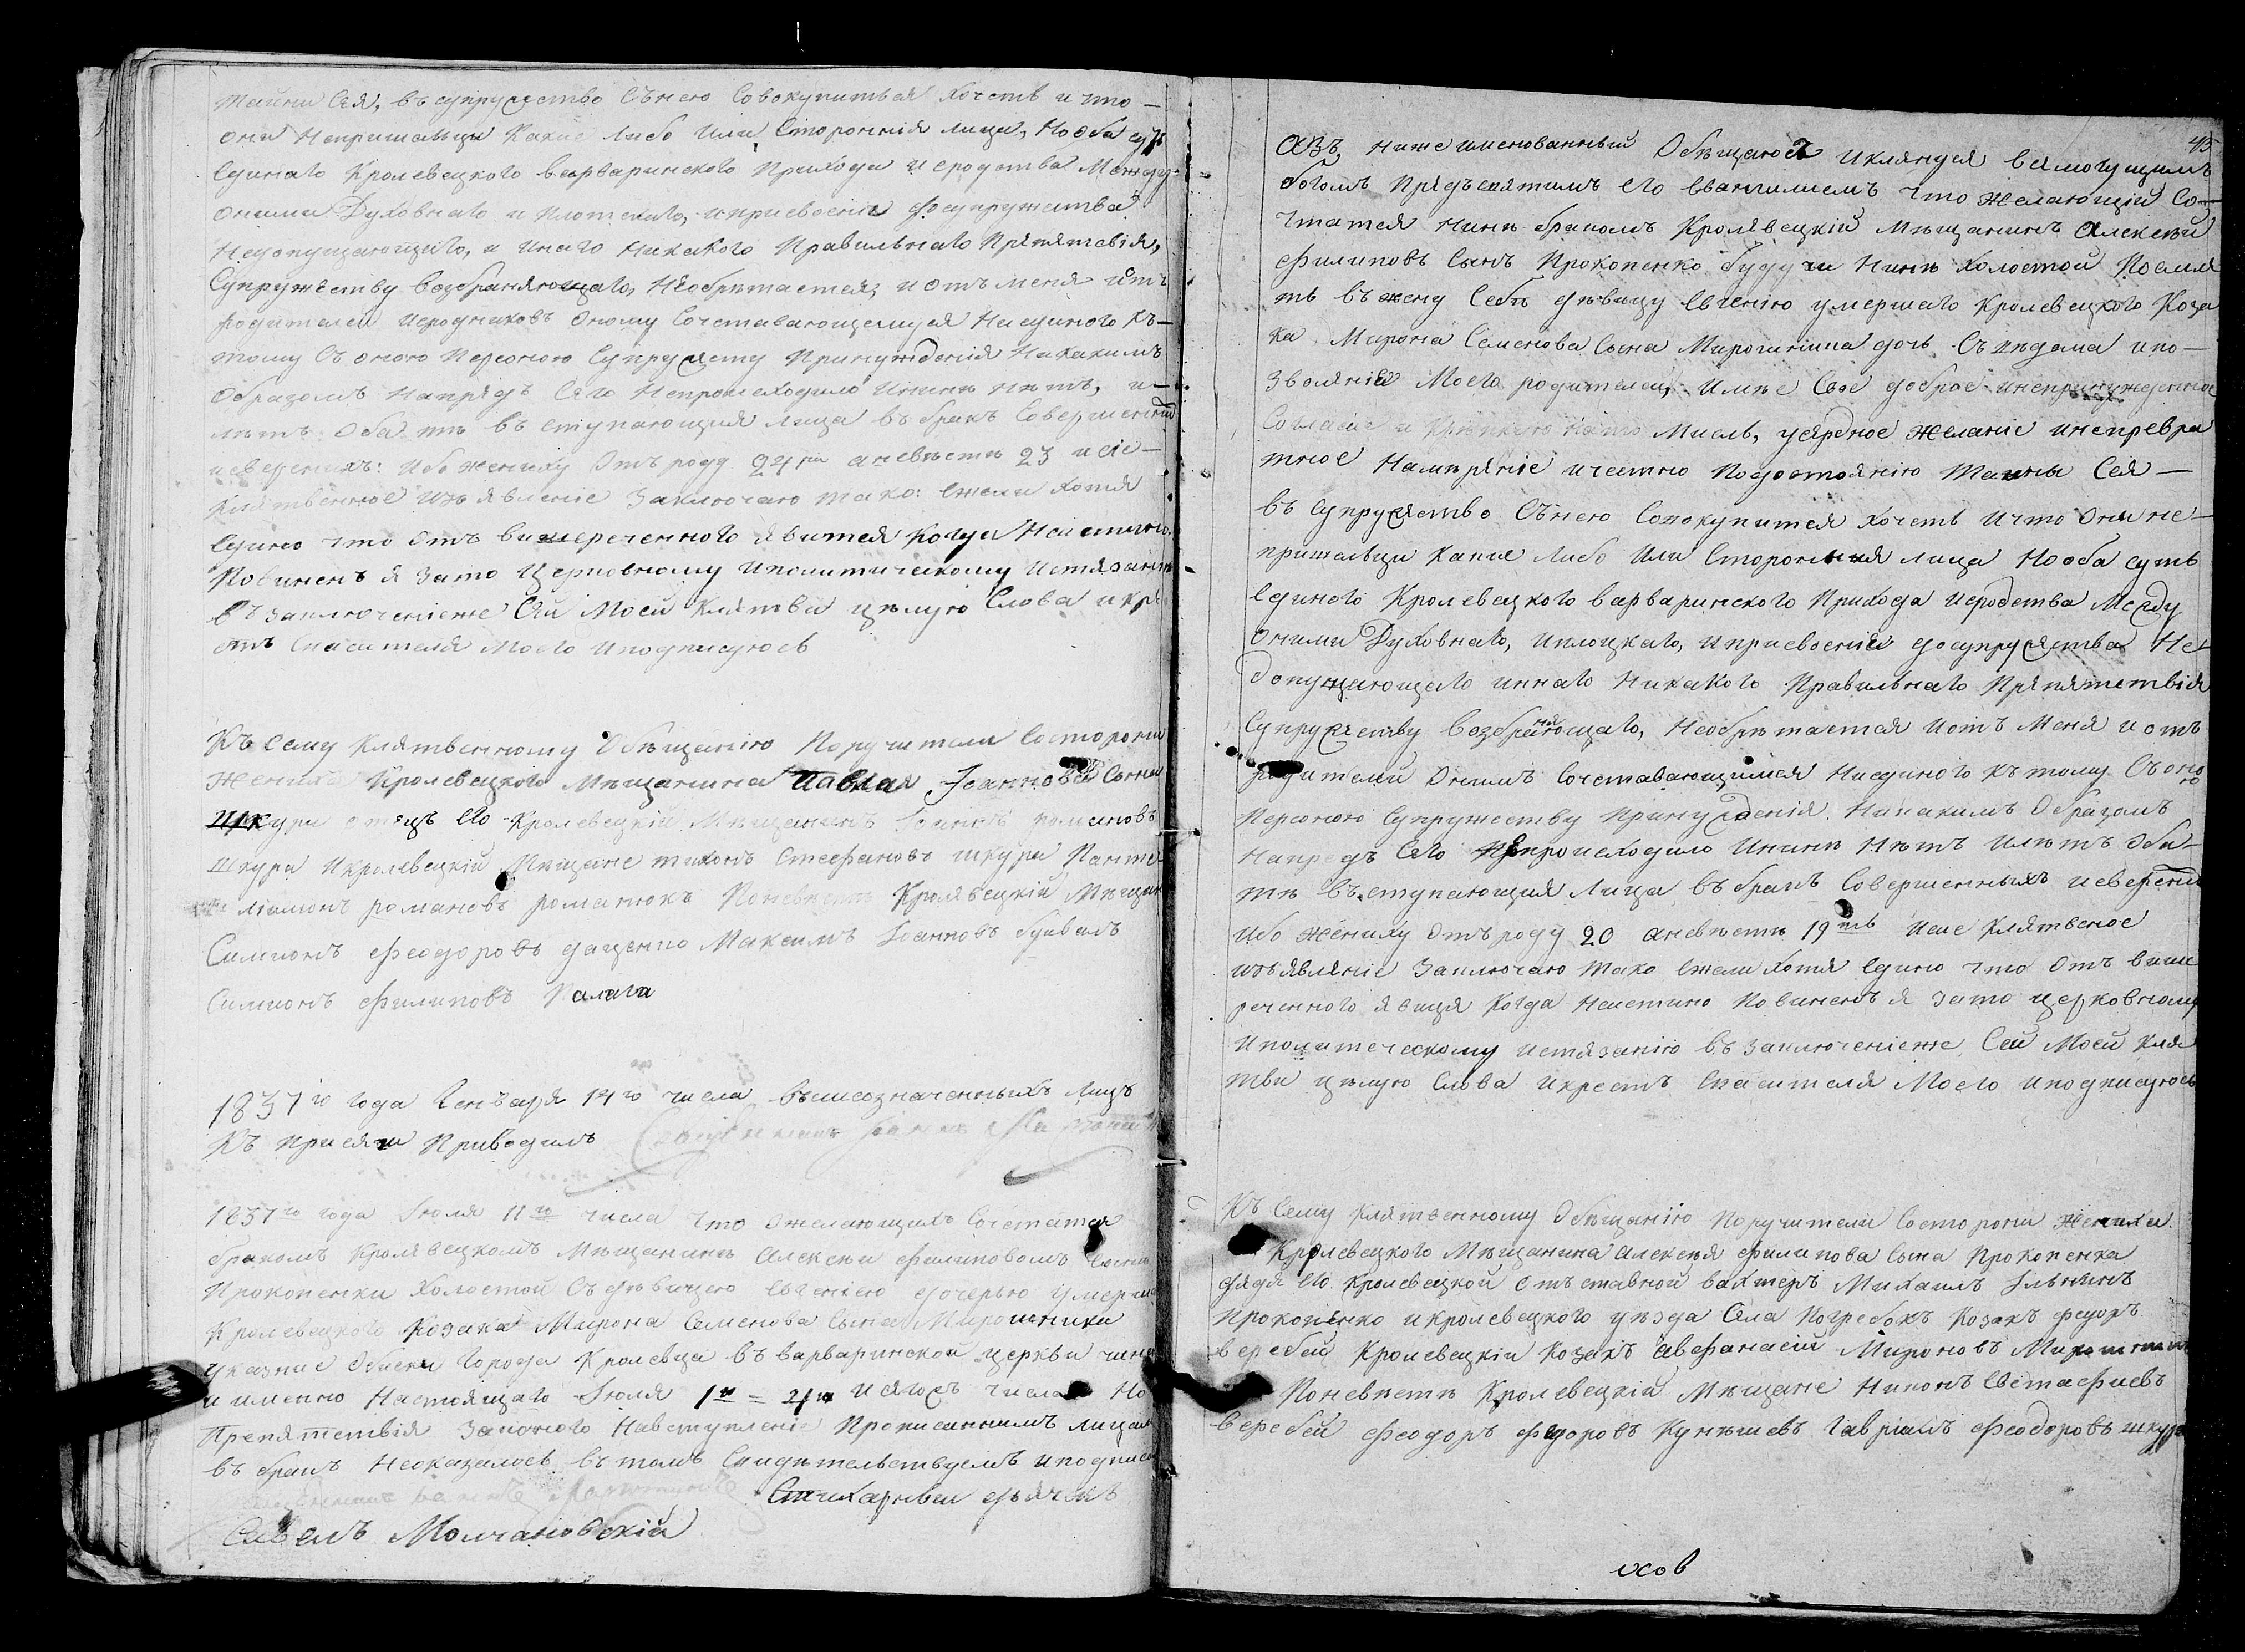 тайни Сея, въ супружество Сънею Совокупиться Хочетъ и что —
они Непришельци Какие либо или Сторонния лица, Но оба суть
Единаго Кролевецкого варваринского Прихода и сродства Между
оними Духовнаго и плотскаго, и присвоения до супружества
Недопущающаго, и инаго Никакого Правильнаго Препятствія,
Супружеству возбраняющаго, Необрѣтается, и отъ меня и отъ
родителей и сродниковъ оному Сочетавающемуся Ниединого къ —
тому Съ оною Персоною Супружеству Принужденія Никакимъ
образомъ Напредъ Сего Непроисходило и нинѣ нѣтъ, и —
лѣтъ оба тѣ въ ступающия лица въ бракъ Совершенни
ибо жениху Отъ роду 24 аневѣстѣ 23 и сіе —
клятвенное изъявленіе Заключаю тако: ежели хотя
Едино что отъ вишереченного явится Когда Неистинно
Повиненъ я зато Церковному и политическому истязанію
въ заключеніеже Сей Моей Клятви цѣлую Слова и кре
стъ Спасителя Моего и подписуюсь
Къ Сему Клятвенному Обѣщанію Поручители Состорони
Жениха Кролевецкого Мѣщанина Павла Іоаннова Сина
Шкури отецъ его Кролевецкій Мѣщанинъ Іоаннъ романовъ
Шкура и Кролевецкій Мѣщане тихонъ Стефановъ шкура Панте
лимонъ романовъ романюкъ Поневѣстѣ Кролевецкій Мѣщане
Симионъ Феодоровъ даценко Максимъ Іоанновъ
Симионъ Филиповъ Палага
1837го года Генъваря 14го числа вышеозначенныхъ лицъ
Къ присяги Приводилъ
1837го года Іюля 11го числа что Желающихъ Сочетатся
бракомъ Кролевецкомъ Мѣщанинѣ Алексѣи Филиповомъ синѣ
Прокопенки Холостой Съ дѣвицею Евгениею дочерью умерша
Кролевецкого Козака Мирона Семенова Сына Мирошника
указние Обиски Города Кролевца въ варваринской церкви чине
и именно Настоящаго Іюля 1го = 4го и числа Но
Препятствія Законного Навступление Прописаннимъ лицамъ
въ бракъ Неоказалось въ томъ Свидѣтельствуемъ и подписа
Стихарный дьячекъ
Савелъ Молчановскій
45
Азъ ниже именованный Обѣщаюся и клянуся всемогущимъ
богомъ предъсвятимъ его евангилиемъ что желающій Со —
четатся нинѣ бракомъ Кролевецкій Мѣщанинъ Алексѣй
Филиповъ Сынъ Прокопенко будучи Нинѣ Холостой Поемле
тъ въ жену Себѣ дѣвицу Евгению умершаго Кролевецкого Коза
ка Мирона Семенова Сына Мирошника дочъ Съ вѣдома и по —
зволения Моего родителей, Имѣе Свое доброе и непринужденное
Согласие и Крѣпкую Нато Мисль, усердное Желаніе и непревра
тное Намѣреніе и честно Подостоянію Тайны Сея —
въ Супружество Сънею Совокупится Хочетъ и что Они не —
пришельци какие либо Или Сторонния лица Но оба суть
Единого Кролевецкого варваринского Прихода и сродства Между
оними Духовнаго, и плоцкаго, и присвоенія до супружества Не
допущающаго иннаго Никакого Правильнаго Препятствія
Супружеству возбраняющаго, Необрѣтается и отъ меня и отъ
родителей онимъ Сочетавающимся Ниединого къ тому Съ оною
персоною Супружеству Принужденія Никакимъ Образомъ
Напредъ Сего Непроисходило Инине Нѣтъ илѣтъ оба —
тѣ въступающия лица въ бракъ Совершенныхъ
Ибо жениху Отъ роду 20 аневѣстѣ 19ть исие Клятвеное
изъявленіе Заключаю тако ежели хотя едино что отъ више
реченного явится Когда Неистино Повиненъ я зато церковному
Иполитическому истязанію въ заключеніеже Сей Моей Кля
тви цѣлую Слова и крестъ Спасителя Моего и подписуюсь
Къ Сему Клятвенному Обѣщанію Поручители Состорони Жениха
Кролевецкого Мѣщанина Алексѣя Филипова Сына Прокопенка
дядя его Кролевецкой отъставной вахтеръ Михаилъ Ильинъ
Прокопенко и кролевецкого уѣзда Села Погребокъ Козакъ Федоръ
веребей Кролевецкій Козакъ Авефанасій Мироновъ Мирошник
Поневѣстѣ Кролевецкія Мѣщане Никонъ Евстафиевъ
веребей Феодоръ Федоровъ Кунѣшевъ Гавриилъ Феодоровъ шкура